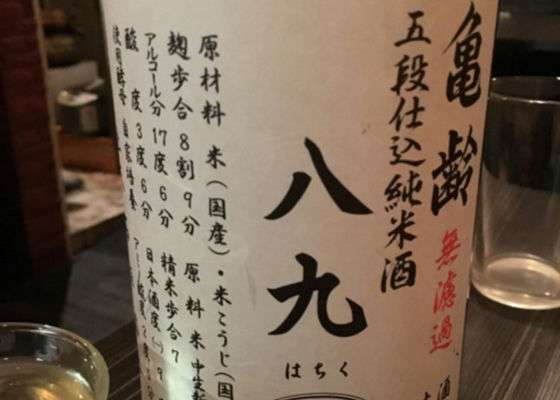 亀齢
無濾過
五段仕込純米酒
八九
はちく
原材料 米(国産)・米こうじ(国
麹歩合 8割9分 原料米 中生新
アルコール分 17度6分 精米歩合 7
酸度 3度6分 日本酒度(-)9
使用酵母 自家培養 アミノ酸度 2度